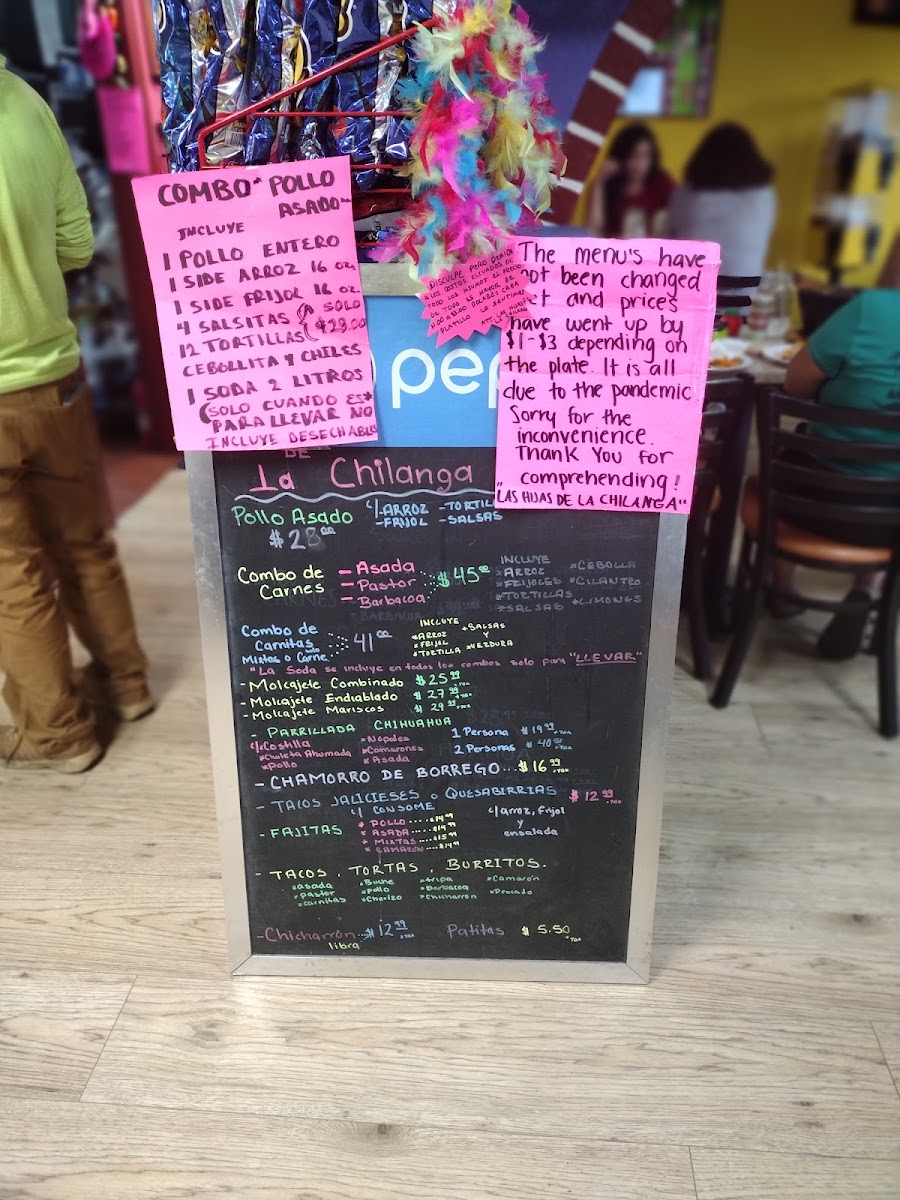 COMBO* POLLO
ASADO
INCLUYE
1 POLLO ENTERO
1 SIDE ARROZ 16 oz.
1 SIDE FRIJOL 16 oz
4 SALSITAS SOLO
12 TORTILLAS $29.00
CEBOLLITA Y CHILES
1 SODA 2 LITROS
(SOLO CUANDO ES*
PARA LLEVAR NO
INCLUYE DESECHABLES
DISCULPE PERO DEBIDO
A LOS COSTOS ELEVADOS DE
TODO LOS
DE TODO ES MAYOR DE
DOLARES CADA
PLATILLO LO SENTIMOS
ATT. LAS HIJAS
LA CHILANGA
The menu's have
not been changed
yet and prices
have went up by
$1-$3 depending on
the plate. It is all
due to the pandemic.
Sorry for the
inconvenience.
Thank You for
comprehending!
"LAS HIJAS DE LA CHILANGA"
pep
DE
La Chilanga
Pollo Asado c/-ARROZ -TORTILL
-FRIJOL -SALSAS
$28.00
Combo de Carnes
- Asada
- Pastor
- Barbacoa
$45.00
INCLUYE
*ARROZ *CEBOLLA
*FRIJOLES *CILANTRO
*TORTILLAS *LIMONES
*SALSAS
Combo de
Carnitas
Mixtas o solo Carne
41.00
INCLUYE
*ARROZ *SALSAS
*FRIJOL Y
*TORTILLA *VERDURA
"La Soda se incluye en todos los combos solo para "LLEVAR"
- Molcajete Combinado $25.99 +TAX
- Molcajete Endiablado $27.99 +TAX
- Molcajete Mariscos $29.99 +TAX
- PARRILLADA CHIHUAHUA
c/*Costilla *Nopales 1 Persona $19.99 +TAX
*Chuleta Ahumada *Camarones 2 Personas $40.99 +TAX
*Pollo *Asada
- CHAMORRO DE BORREGO... $16.99 +TAX
- TACOS JALICIESES o QUESABIRRIAS $12.99 +TAX
c/ CONSOME c/arroz, frijol
y
ensalada
- FAJITAS
* POLLO ....$14.99
* ASADA ....$14.99
* MIXTAS ....$15.99
* CAMARON ....$14.99
- TACOS, TORTAS, BURRITOS.
*asada *Buche *tripa *Camarón
*pastor *Pollo *Barbacoa *Pescado
*carnitas *Chorizo *Chicharron
-Chicharrón ..$12.99 +TAX Patitas $5.50 +TAX
libra